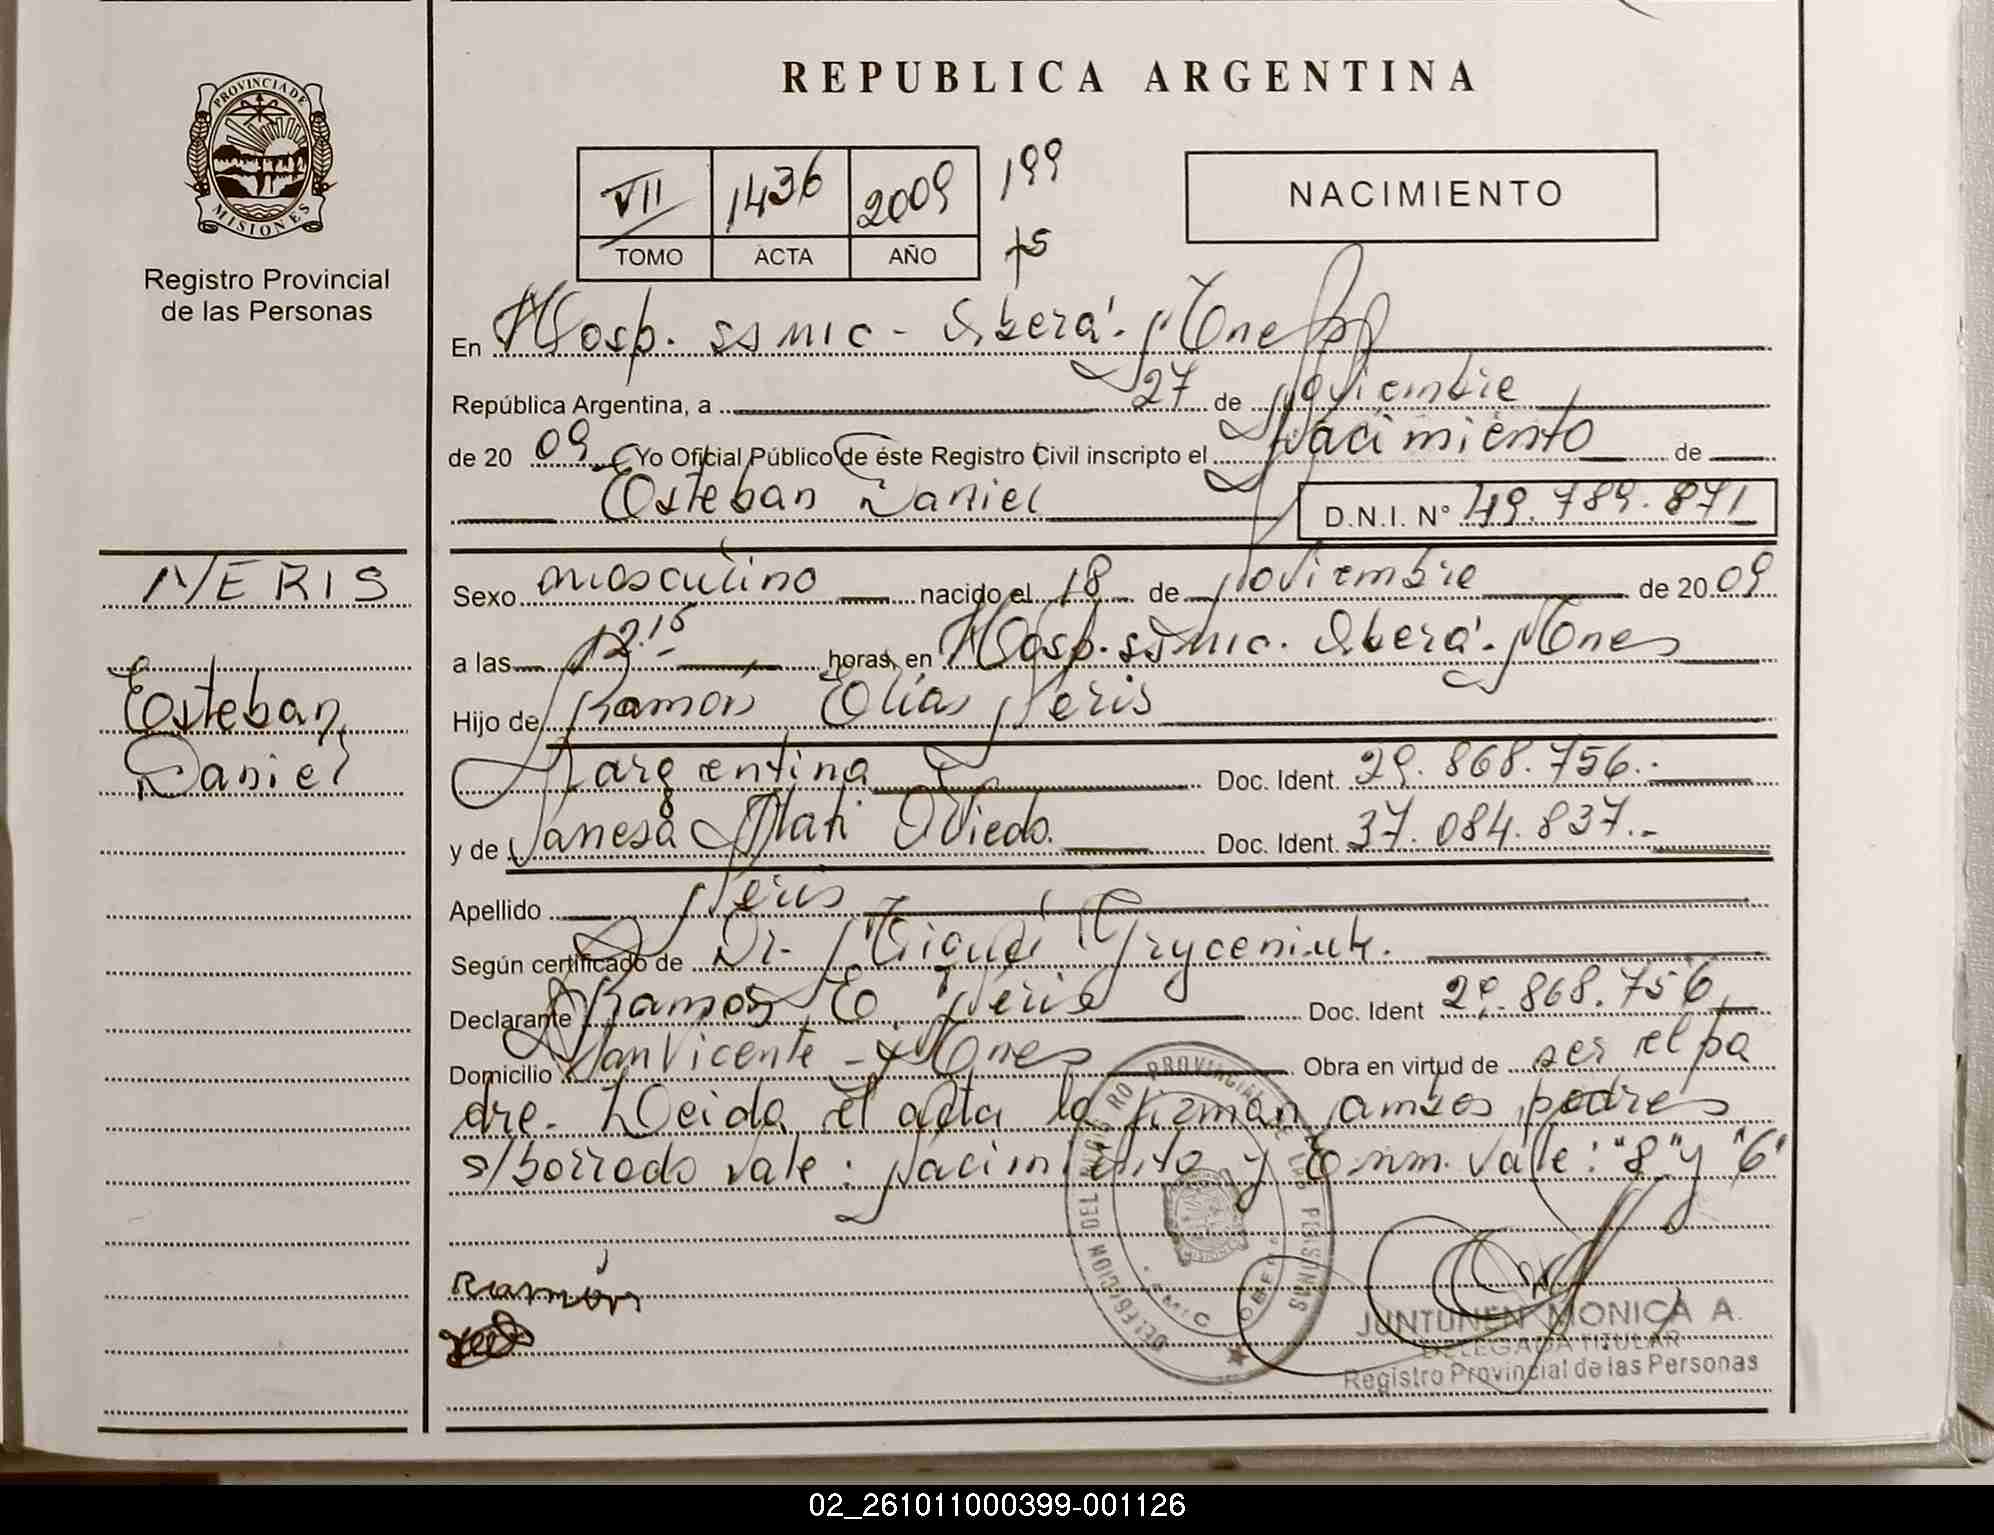 PROVINCIA DE
MISIONES
Registro Provincial
de las Personas
NERIS
Esteban
Daniel
REPUBLICA ARGENTINA
VII 1436 2009 199
TOMO ACTA AÑO 75
NACIMIENTO
En Hosp. SSMIC - Oberá - Mnes
República Argentina, a 27 de Noviembre
de 2009 Yo Oficial Público de éste Registro Civil inscripto el Nacimiento de
Esteban Daniel D.N.I. N° 49.789.871
Sexo masculino nacido el 18 de Noviembre de 2009
a las 12.15 horas, en Hosp. SSMIC. Oberá - Mnes
Hijo de Ramón Elías Neris
argentina Doc. Ident. 29.868.756.-
y de Vanesa Mari Oviedo. Doc. Ident. 37.084.837.-
Apellido Neris
Según certificado de Dr. Miguel Gryceniuk.
Declarante Ramón E. Neris Doc. Ident 29.868.756
Domicilio San Vicente - Mnes Obra en virtud de ser el pa
dre. Leida el acta la firman ambos padres
s/borrado vale: Nacimiento y Enm. vale: "8" y "6"
Ramón
DELEGACION DEL REGISTRO PROVINCIAL DE LAS PERSONAS
JUNTUNEN MONICA A.
DELEGADA TITULAR
Registro Provincial de las Personas
02_261011000399-001126